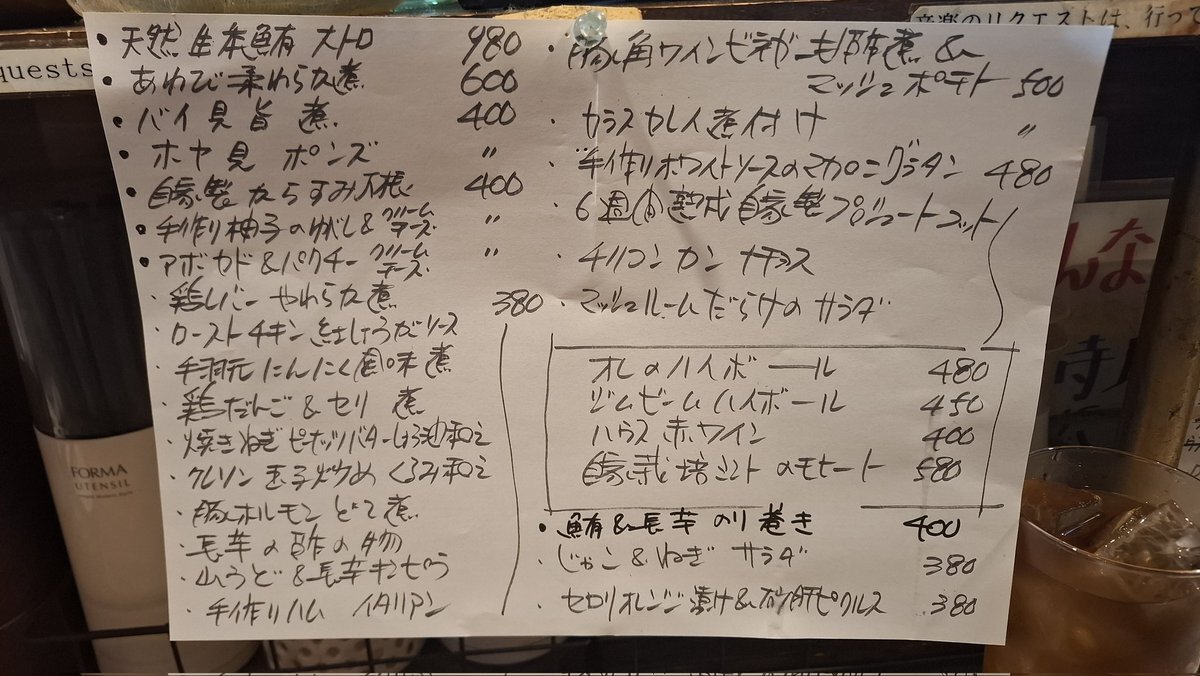 音楽のリクエストは、行って
quests
・天然生本鮪 大トロ 980
・あわび柔わらか煮 600
・バイ貝旨煮 400
・ホヤ貝 ポンズ 〃
・自家製からすみ大根 400
・手作り柚子のゆがし&クリームチーズ 〃
・アボカド&パクチー クリームチーズ 〃
・鶏レバーやわらか煮 380
・ローストチキン紅しょうがソース
・手羽元にんにく風味煮
・鶏だんご&セリ煮
・焼きねぎピーナッツバターしょう油和え
・クレソン玉子炒めくるみ和え
・豚ホルモンどて煮
・長芋の酢の物
・山うど&長芋キンピラ
・手作りハム イタリアン
・豚角ワインビネガー黒酢煮&
マッシュポテト 500
・カラスカレイ煮付け 〃
・手作りホワイトソースのマカロニグラタン 480
・6週間熟成自家製プロシュートコット
・チリコンカンナチョス
・マッシュルームだらけのサラダ
オレのハイボール 480
ジムビームハイボール 450
ハウス赤ワイン 400
自家栽培ミントのモヒート 580
・鮪&長芋のり巻き 400
・じゃこ&ねぎサラダ 380
・セロリオレンジ漬け&砂肝ピクルス 380
んな
寺
FORMA
UTENSIL